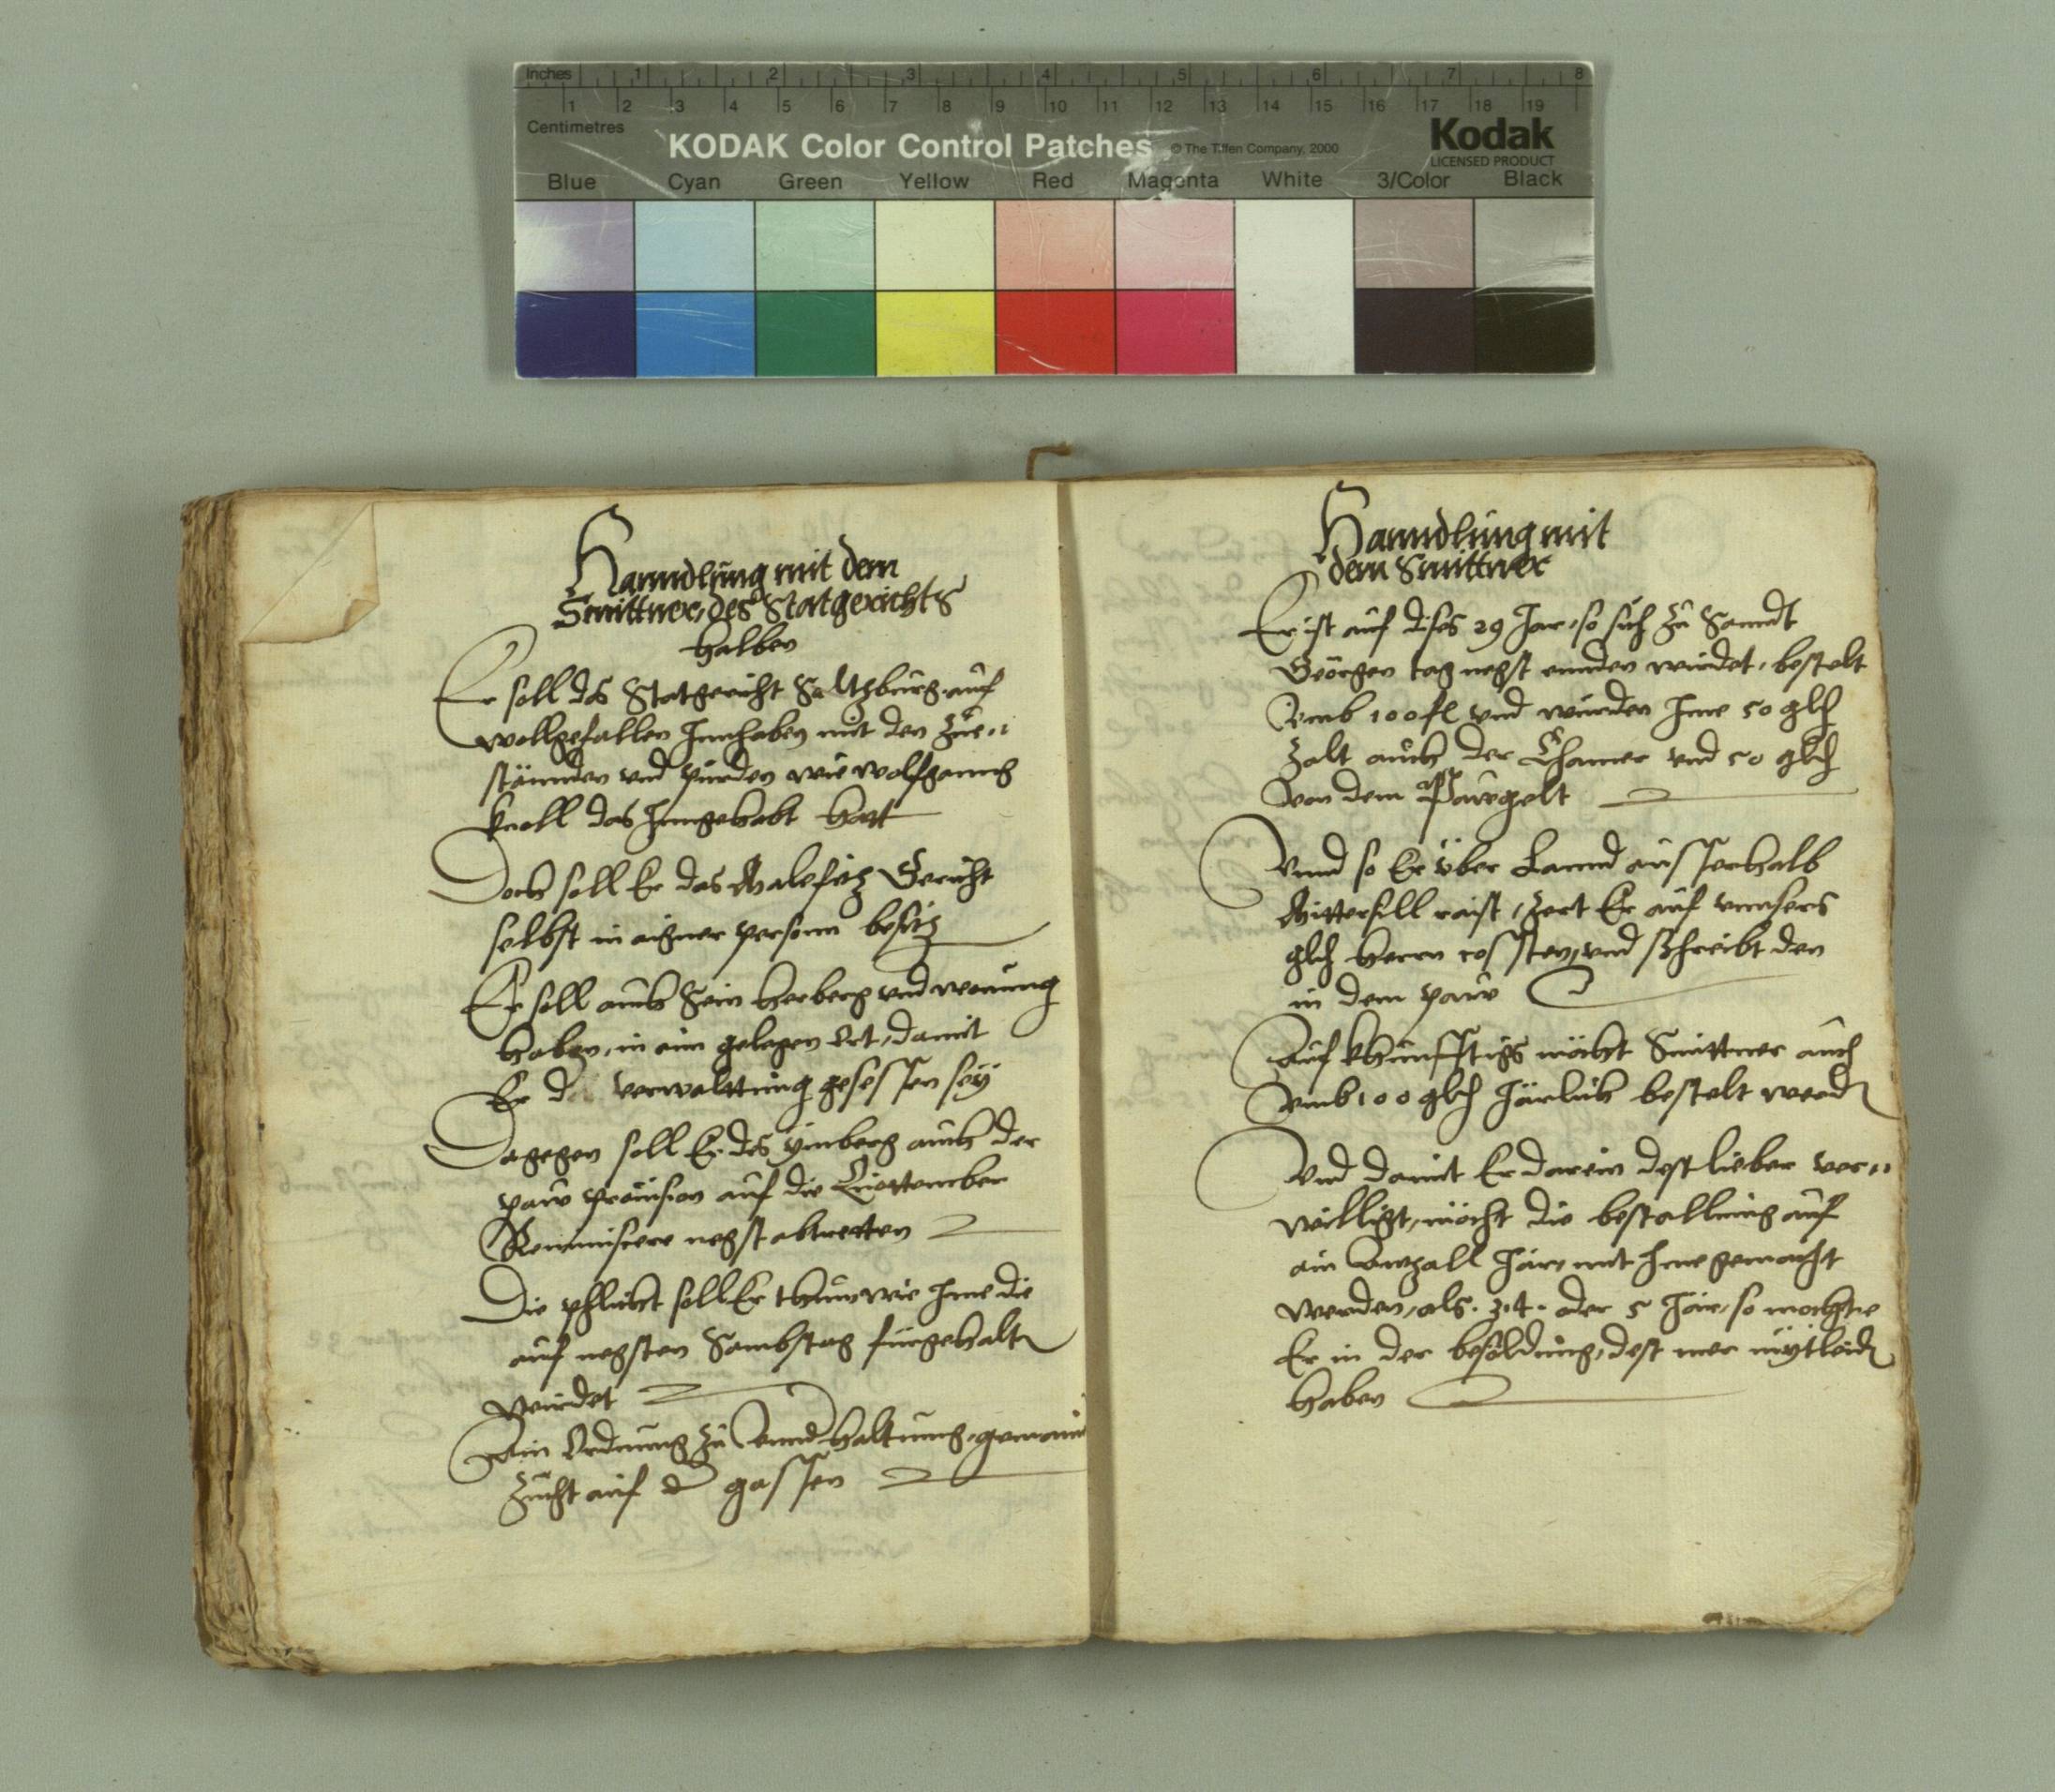 Inches 1 2 3 4 5 6 7 8
1 2 3 4 5 6 7 8 9 10 11 12 13 14 15 16 17 18 19
Centimetres
KODAK Color Control Patches © The Tiffen Company, 2000 Kodak
LICENSED PRODUCT
Blue Cyan Green Yellow Red Magenta White 3/Color Black
Hanndlung mit dem
Smittner, des Statgerichts
halben
Er soll das Statgericht Saltzburg auf
wollgefallen Innhaben mit den Zue„
stännden vnd pürden wie wolfganng
knoll das Inngehabt hatt
Doch soll Er das Malefitz Gericht
selbst in aigner person besitz
Er soll auch Sein herberg vnd wonung
haben, in ein gelegen Ort, damit
Er verwalttung gesessen sey
Dagegen soll Er des ymberg auch der
paw prouision auf die Quottember
Reminiscere negst abtretten
Die phlicht soll Er thun wie Ime die
auf negsten Sambstag fürgehalten
wirdet
Ain Ordnung zu hanndhaltung gemain
Zucht auf der gassen
Hanndlung mit
dem Smittner
Er ist auf dises 29 Jar, so sich zu Sanndt
Geörgen tag negst ennden wirdet, bestelt
Vmb 100 fl vnd wurden Ime 50 glh
Zalt auch der Chamer vnd 50 glh
Von dem Pawgelt
Vnnd so Er über Lannd ausserhalb
Mittersill raist, zert Er auf vnnsers
glh herrn cossten, vnd schreibt den
in dem paw
Auf khünfftigs möcht Smittner auch
vmb 100 glh Järlich bestelt werden
Vnd damit Er darein dest lieber ver„
willigt, möcht die bestallung auf
ain Anzall Jar, mit Ime gemacht
werden, als. 3.4. oder 5 Jar, so mochte
Er in der besoldung, dest mer mytleiden
haben